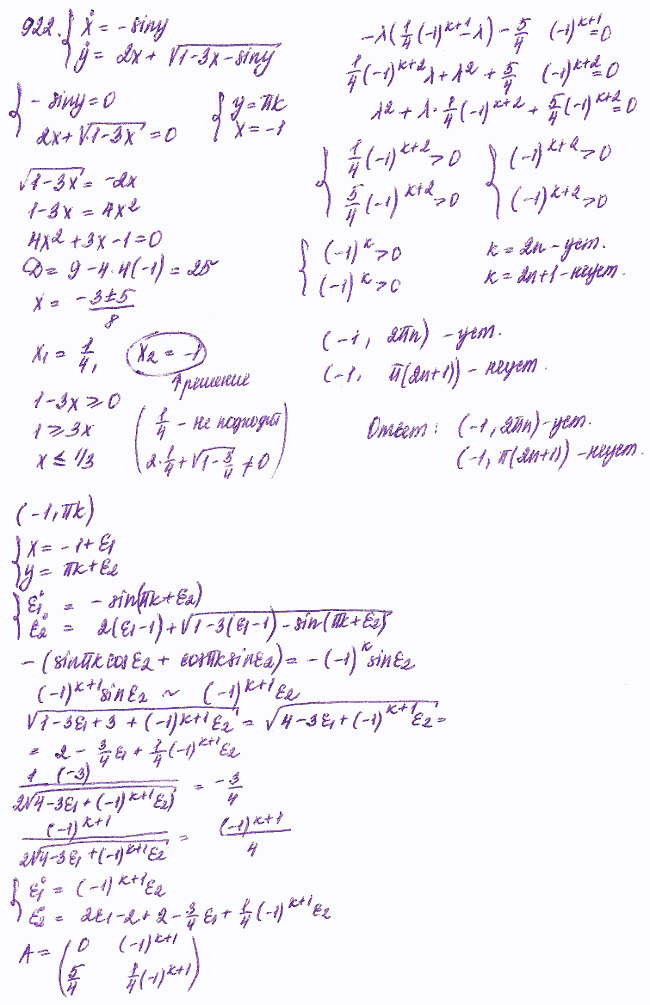 922. { ẋ = -siny
ẏ = 2x + √(1-3x-siny)
{ -siny = 0
2x+√(1-3x) = 0
{ y = πk
x = -1
√(1-3x) = -2x
1-3x = 4x²
4x²+3x-1=0
D = 9-4·4(-1) = 25
x = (-3±5)/8
x₁ = 1/4, x₂ = -1
↑ решение
1-3x ≥ 0
1 ≥ 3x
x ≤ 1/3
( 1/4 - не подходит
2·1/4+√(1-3/4) ≠ 0 )
(-1, πk)
{ x = -1+ε₁
y = πk+ε₂
{ ε̇₁ = -sin(πk+ε₂)
ε̇₂ = 2(ε₁-1)+√(1-3(ε₁-1)-sin(πk+ε₂))
-(sinπk cosε₂ + cosπk sinε₂) = -(-1)ᵏ sinε₂
(-1)ᵏ⁺¹ sinε₂ ~ (-1)ᵏ⁺¹ ε₂
√(1-3ε₁+3+(-1)ᵏ⁺¹ε₂) = √(4-3ε₁+(-1)ᵏ⁺¹ε₂) =
= 2 - 3/4 ε₁ + 1/4 (-1)ᵏ⁺¹ε₂
1·(-3) / (2√(4-3ε₁+(-1)ᵏ⁺¹ε₂)) = -3/4
(-1)ᵏ⁺¹ / (2√(4-3ε₁+(-1)ᵏ⁺¹ε₂)) = (-1)ᵏ⁺¹/4
{ ε̇₁ = (-1)ᵏ⁺¹ε₂
ε̇₂ = 2ε₁-2+2-3/4 ε₁+1/4 (-1)ᵏ⁺¹ε₂
A = ( 0 (-1)ᵏ⁺¹
5/4 1/4(-1)ᵏ⁺¹ )
-λ(1/4(-1)ᵏ⁺¹-λ) - 5/4 (-1)ᵏ⁺¹=0
1/4(-1)ᵏ⁺²λ+λ² + 5/4 (-1)ᵏ⁺²=0
λ²+λ·1/4(-1)ᵏ⁺²+5/4(-1)ᵏ⁺²=0
{ 1/4(-1)ᵏ⁺²>0
5/4(-1)ᵏ⁺²>0
{ (-1)ᵏ⁺²>0
(-1)ᵏ⁺²>0
{ (-1)ᵏ>0
(-1)ᵏ>0
k=2n-уст.
k=2n+1-неуст.
(-1, 2πn) - уст.
(-1, π(2n+1)) - неуст.
Ответ: (-1, 2πn)-уст.
(-1, π(2n+1))-неуст.